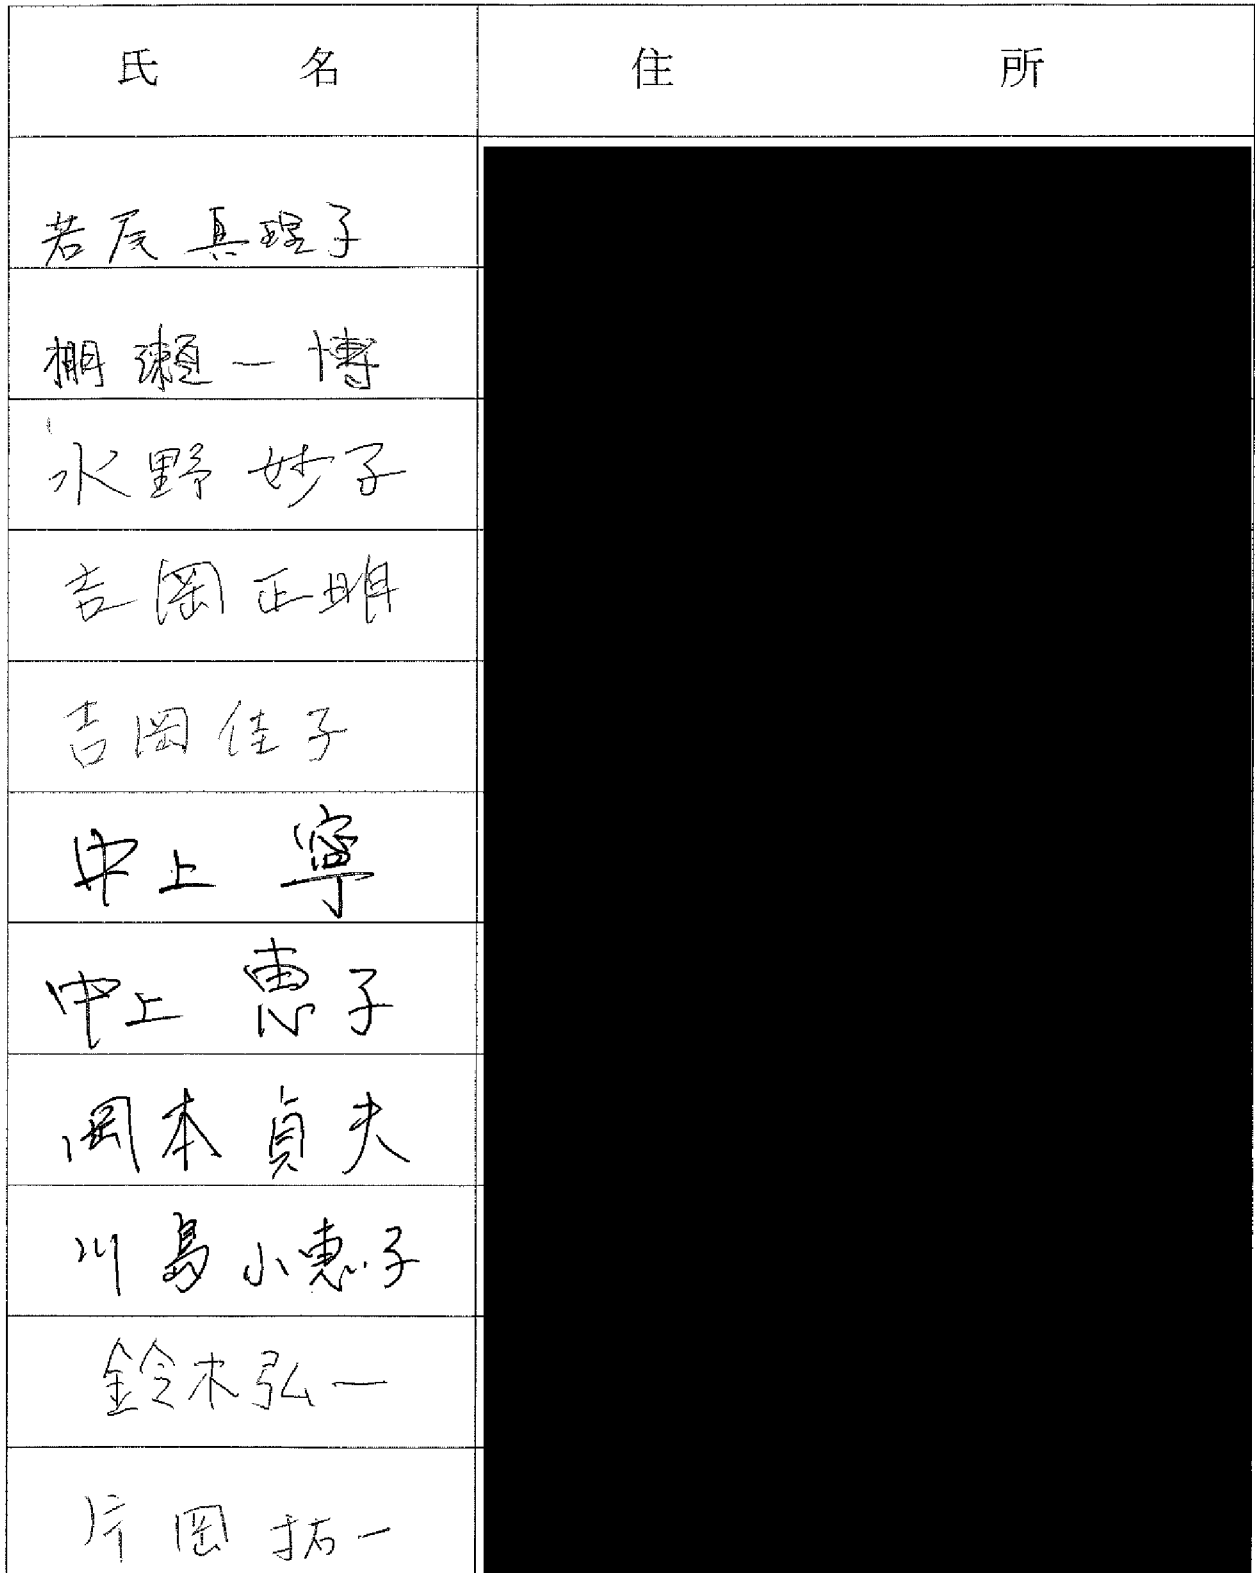 氏名 住所
若尾 真理子
棚瀬一博
水野 妙子
吉岡正明
吉岡佳子
中上 寧
中上 恵子
岡本 貞夫
川島小恵子
鈴木弘一
片岡拓一